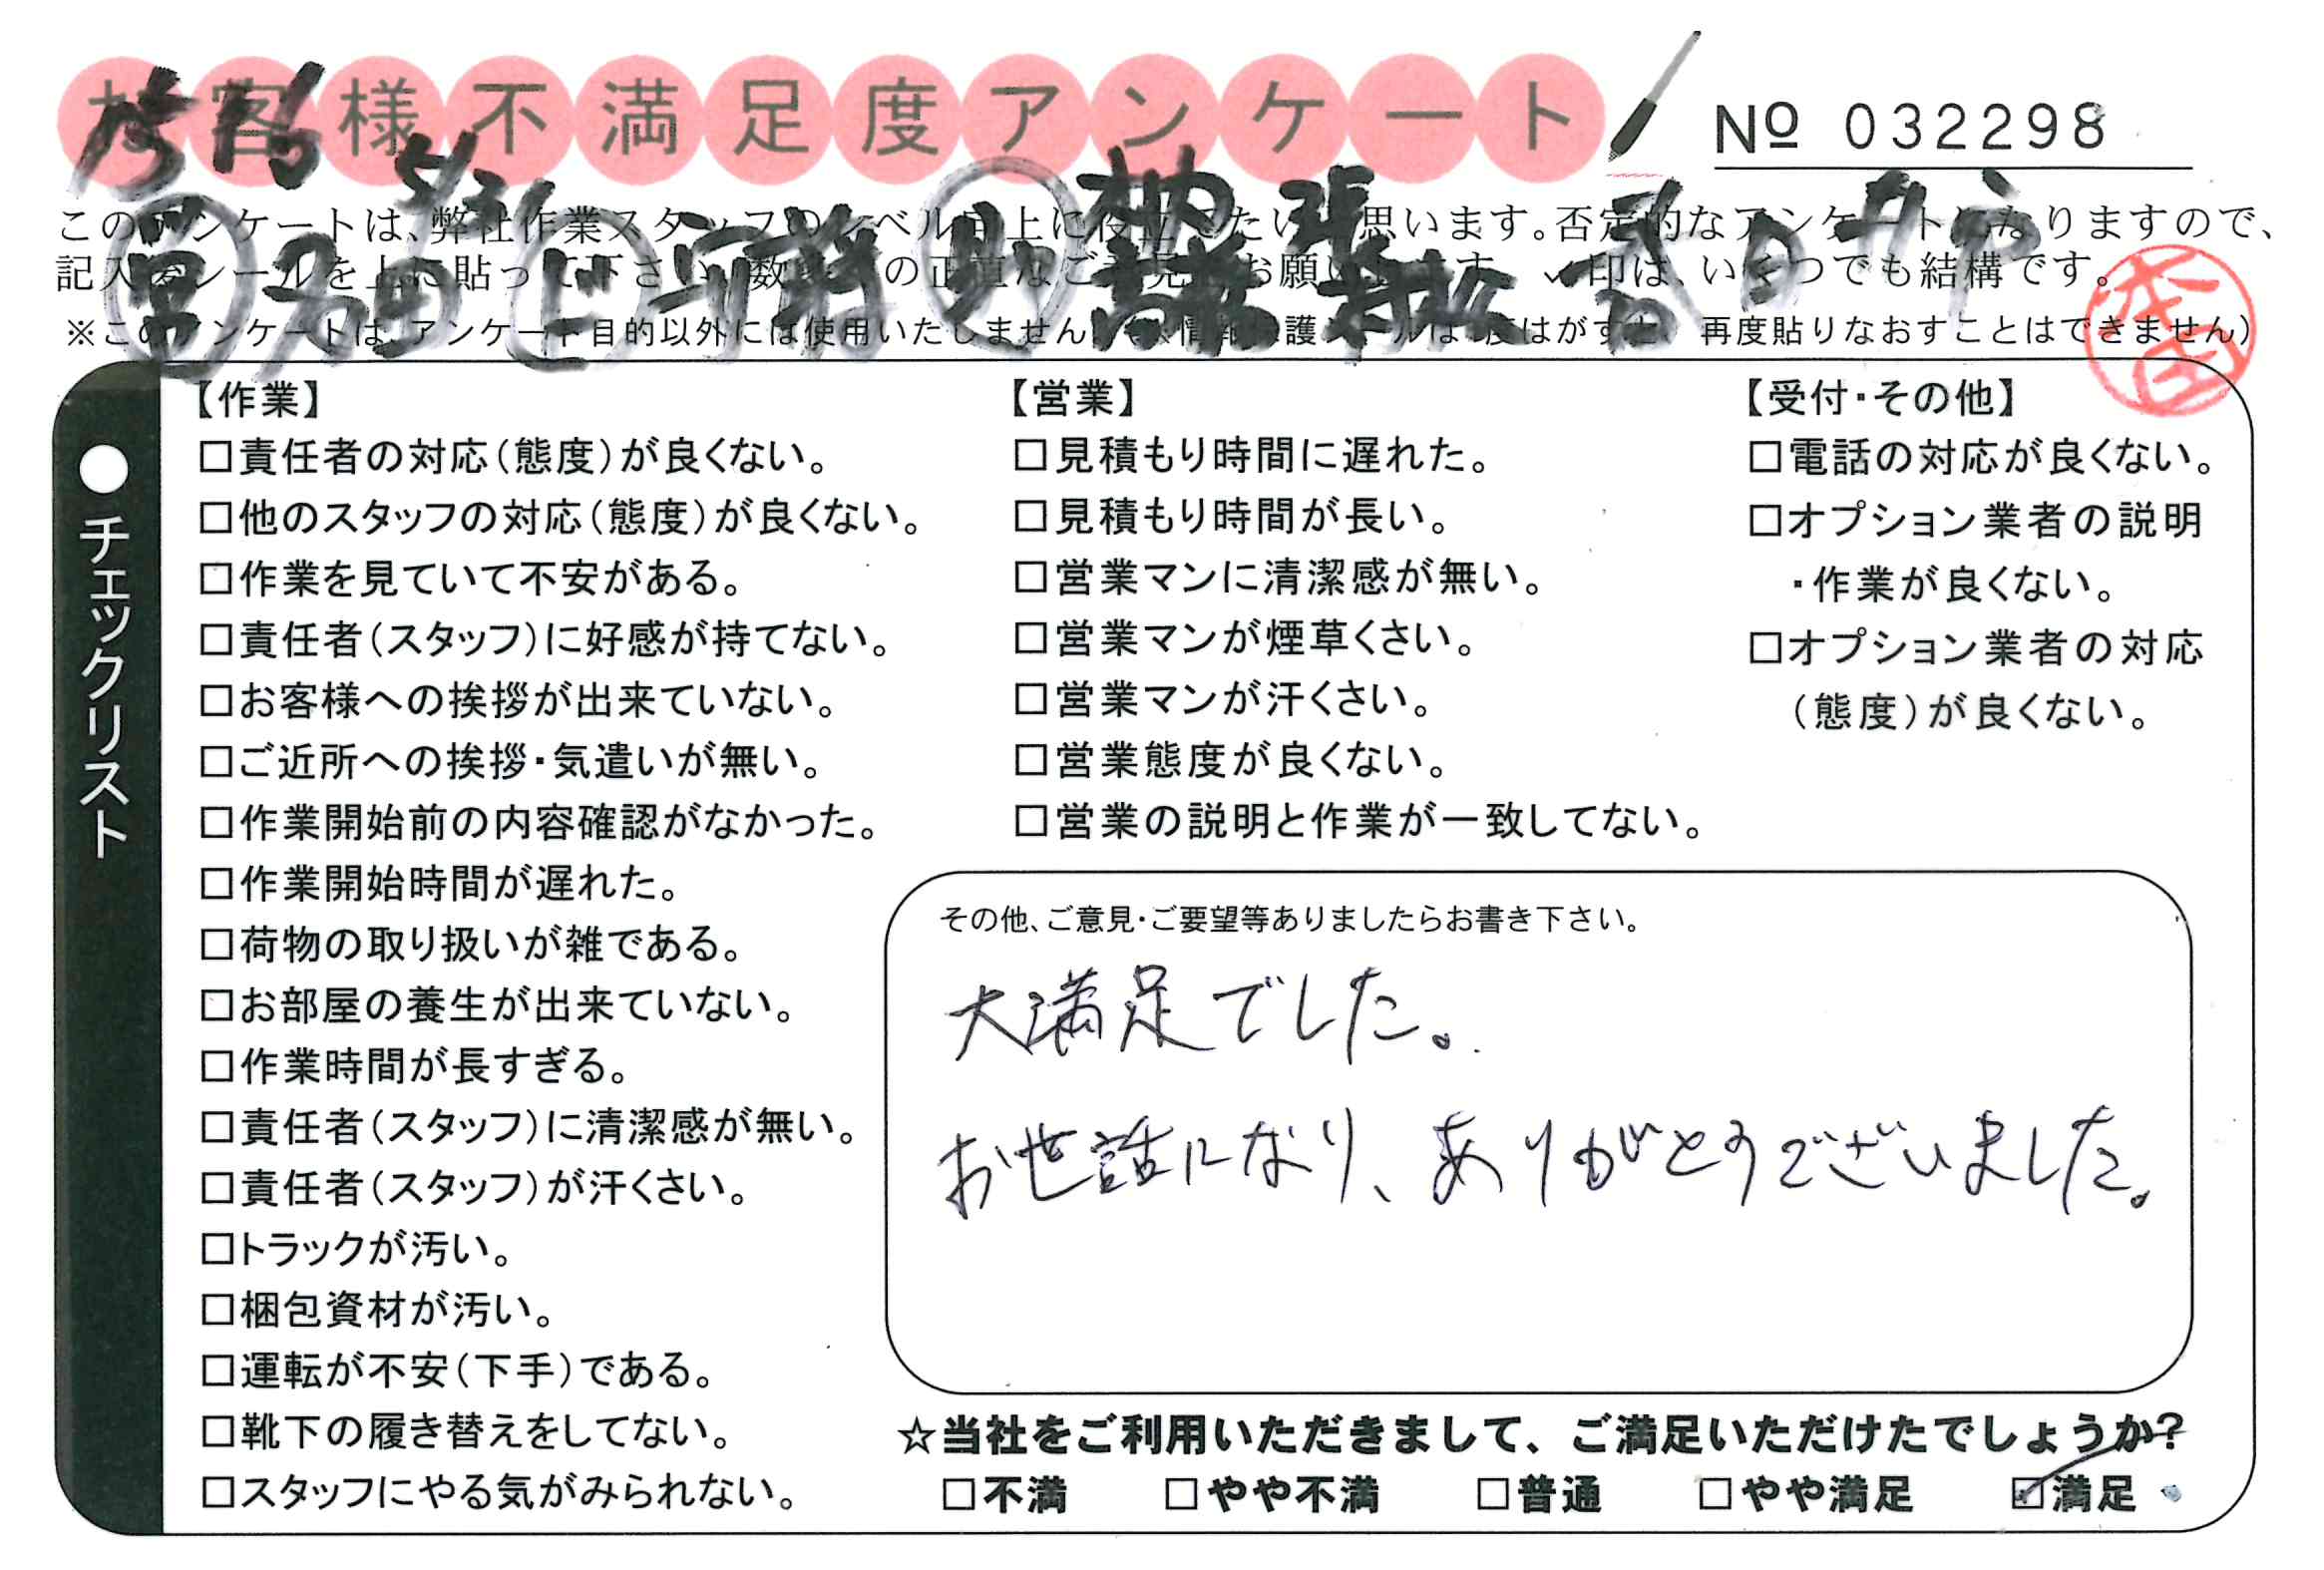 お客様不満足度アンケート
№ 032298
このアンケートは、弊社作業スタッフのレベル向上に役立てたいと思います。否定的なアンケートになりますので、
記入後シールを上に貼って下さい。数多くの正直なご意見をお願いします。✓印は、いくつでも結構です。
※このアンケートは、アンケート目的以外には使用いたしません。 再度貼りなおすことはできません)
本田
●チェックリスト
【作業】
□責任者の対応(態度)が良くない。
□他のスタッフの対応(態度)が良くない。
□作業を見ていて不安がある。
□責任者(スタッフ)に好感が持てない。
□お客様への挨拶が出来ていない。
□ご近所への挨拶・気遣いが無い。
□作業開始前の内容確認がなかった。
□作業開始時間が遅れた。
□荷物の取り扱いが雑である。
□お部屋の養生が出来ていない。
□作業時間が長すぎる。
□責任者(スタッフ)に清潔感が無い。
□責任者(スタッフ)が汗くさい。
□トラックが汚い。
□梱包資材が汚い。
□運転が不安(下手)である。
□靴下の履き替えをしてない。
□スタッフにやる気がみられない。
【営業】
□見積もり時間に遅れた。
□見積もり時間が長い。
□営業マンに清潔感が無い。
□営業マンが煙草くさい。
□営業マンが汗くさい。
□営業態度が良くない。
□営業の説明と作業が一致してない。
【受付・その他】
□電話の対応が良くない。
□オプション業者の説明
・作業が良くない。
□オプション業者の対応
(態度)が良くない。
その他、ご意見・ご要望等ありましたらお書き下さい。
大満足でした。
お世話になり、ありがとうございました。
☆当社をご利用いただきまして、ご満足いただけたでしょうか?
□不満 □やや不満 □普通 □やや満足 ☑満足